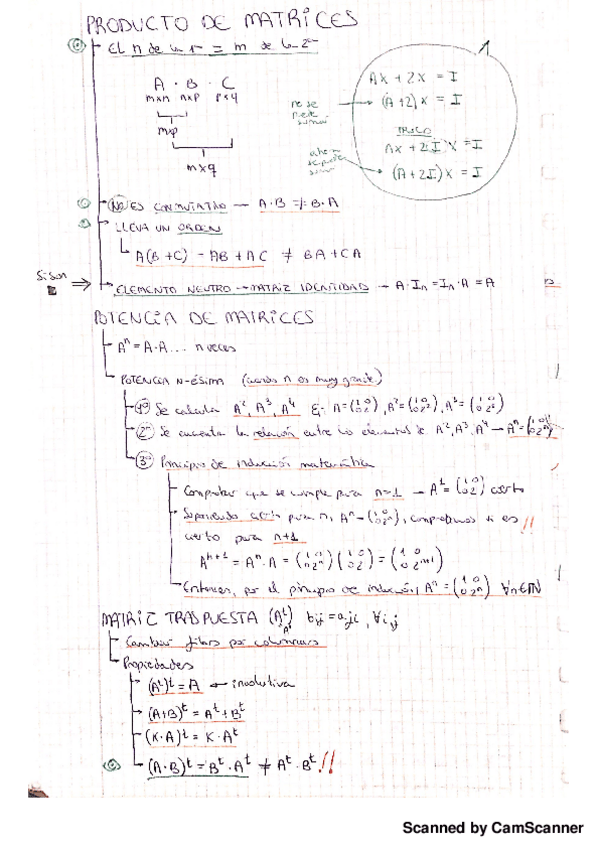 PRODUCTO DE MATRICES
El n de la 1ª = m de la 2ª
A · B · C
m×n n×p p×q
m×p
m×q
1
AX + 2X = I
no se puede sumar → (A+2)X = I
TRUCO
AX + 2·I·X = I
ahora se puede sumar → (A+2I)X = I
NO ES CONMUTATIVO — A·B ≠ B·A
LLEVA UN ORDEN
A(B+C) = AB + AC ≠ BA + CA
Si son
⇒ ELEMENTO NEUTRO → MATRIZ IDENTIDAD → A·Iₙ = Iₙ·A = A
POTENCIA DE MATRICES
Aⁿ = A·A... n veces
POTENCIA N-ÉSIMA (cuando n es muy grande)
1º Se calcula A², A³, A⁴ Ej: A=(1 0 / 0 2), A²=(1 0 / 0 2²), A³=(1 0 / 0 2³)
2º Se encuentra la relación entre los elementos de A², A³, A⁴ → Aⁿ=(1 0 / 0 2ⁿ)
3º Principio de inducción matemática
Comprobar que se cumple para n=1 → A¹=(1 0 / 0 2) cierto
Suponiendo cierto para n, Aⁿ=(1 0 / 0 2ⁿ), comprobamos si es !!
cierto para n+1
Aⁿ⁺¹ = Aⁿ·A = (1 0 / 0 2ⁿ)(1 0 / 0 2) = (1 0 / 0 2ⁿ⁺¹)
Entonces, por el principio de inducción, Aⁿ = (1 0 / 0 2ⁿ) ∀n∈ℕ
MATRIZ TRASPUESTA (Aᵗ) bij = aji, ∀i,j
A'
Cambiar filas por columnas
Propiedades
(Aᵗ)ᵗ = A ← involutiva
(A+B)ᵗ = Aᵗ+Bᵗ
(K·A)ᵗ = K·Aᵗ
(A·B)ᵗ = Bᵗ·Aᵗ ≠ Aᵗ·Bᵗ !!
Scanned by CamScanner